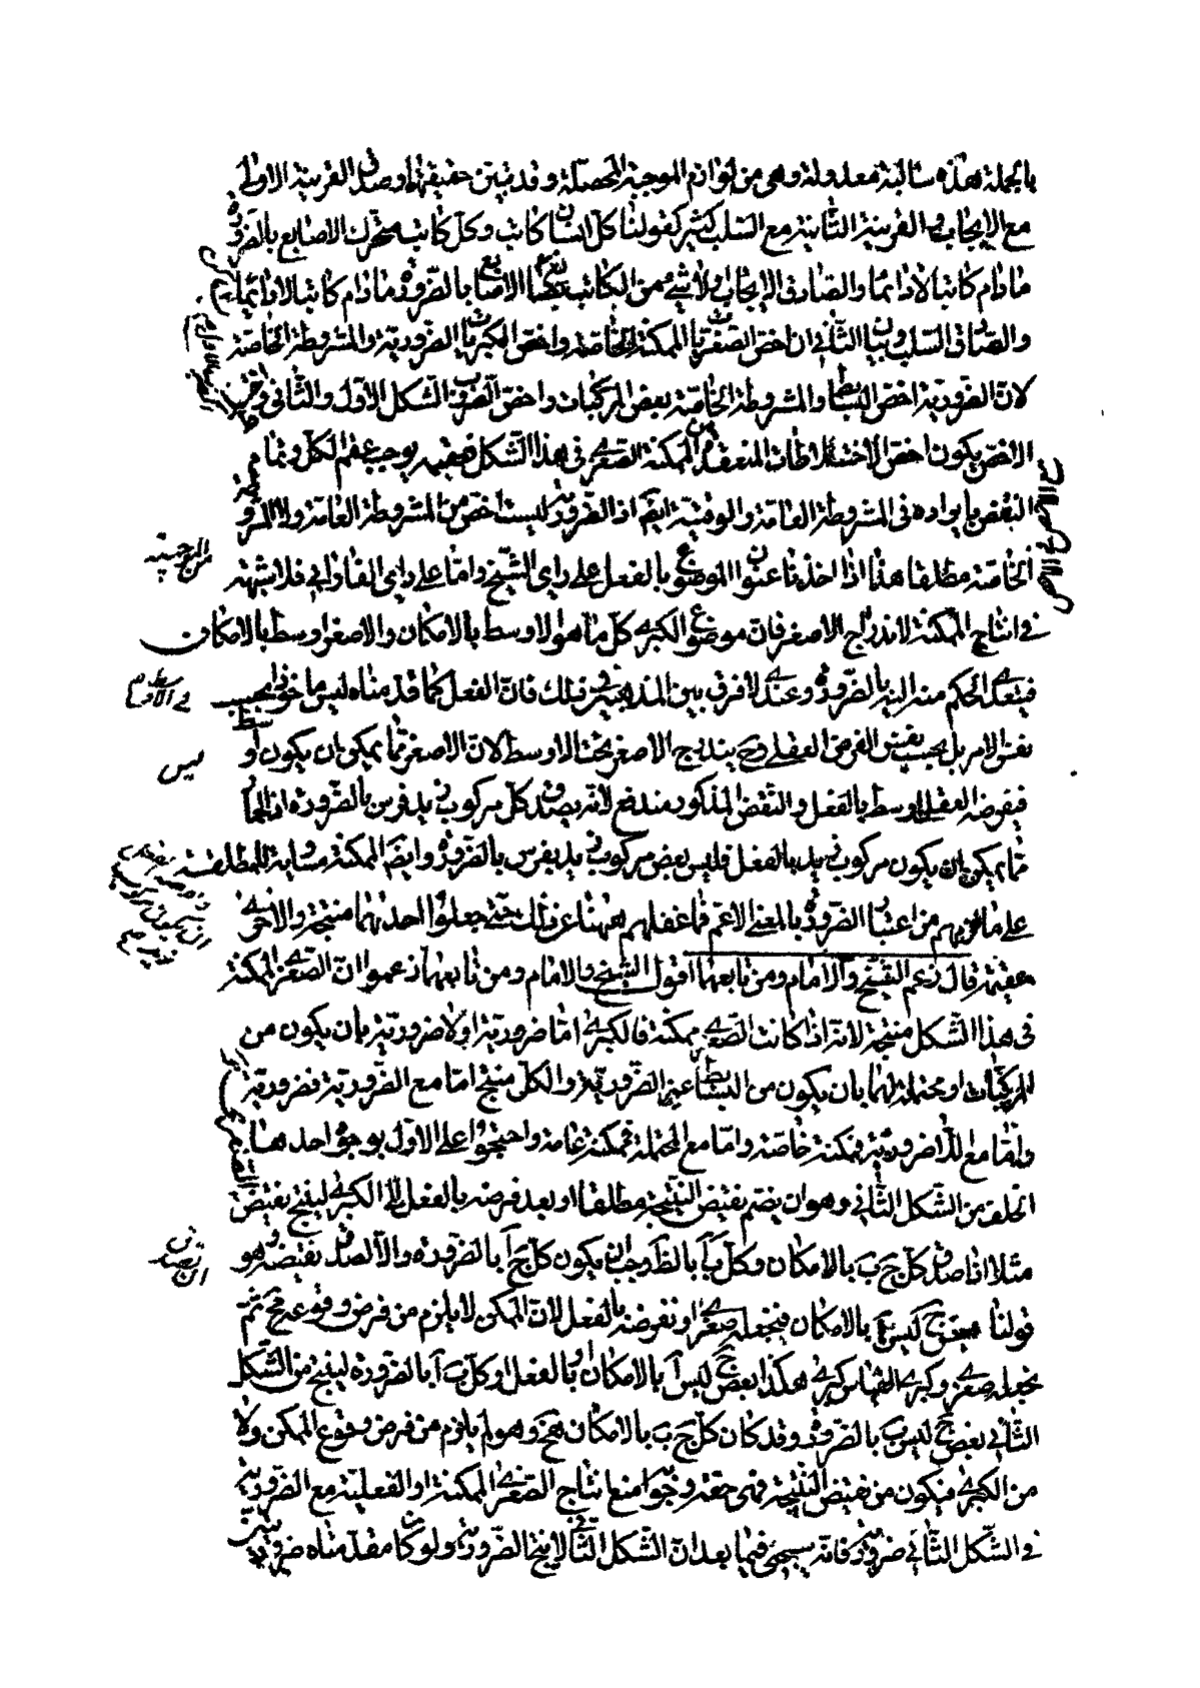 بالجملة هذه سالبة معدولة وهى من لوازم الموجبة المحصّلة وقد تبيّن حقيقتها وصدق القرينة الاولى
مع الايجاب والقرينة الثّانية مع السّلب كثير كقولنا كلّ انسان كاتب وكلّ كاتب متحرّك الاصابع بالضّرورة
مادام كاتبا لادائما والصّادق الايجاب ولا شئ من الكاتب بساكن الاصابع بالضّرورة مادام كاتبا لادائما
والصّادق السّلب وبيان الثّانى ان اخصّ الصّغريات الممكنة الخاصّة واخصّ الكبريات الضّروريّة والمشروطة الخاصّة
لانّ الضّروريّة اخصّ البسائط والمشروطة الخاصّة بعض المركّبات واخصّ الضّروب الشّكل الاوّل والثّانى
يكون اخصّ الاختلاطات المنعقدة من الممكنة الصّغرى فى هذا الشّكل فعقمه يوجب عقم الكلّ وربّما
النّقض بايراده فى المشروطة العامّة والوقتيّة ايضًا اذ الضّروريّة ليست اخصّ من المشروطة العامّة ولا المشروطة
الخاصّة مطلقا هذا اذا اخذنا عنوان الموضوع بالفعل على راى الشّيخ وامّا على راى الفارابى فلا شبهة
فى انتاج الممكنة لاندراج الاصغر فانّ موضوع الكبرى كلّ ما هو الاوسط بالامكان والاصغر اوسط بالامكان
فيتعدّى الحكم منه اليه بالضّرورة وعندى لا فرق بين المذهبين فى ذلك فانّ الفعل كما قدّمناه ليس ماخوذا بحسب
نفس الامر بل بحسب نفس الفرض العقلى وح يندرج الاصغر تحت الاوسط لانّ الاصغر ممّا يمكن ان يكون اوسط
فيفرضه العقل اوسط بالفعل والنّقض المذكور مندفع لانّه يصدق كلّ مركوب زيد فرس بالضّرورة اذ الحمار
ممّا يمكن ان يكون مركوب زيد بالفعل فليس بعض مركوب زيد بفرس بالضّرورة وايضًا الممكنة مساوية للمطلقة
على ما هو من اعتبار الضّرورة بالمعنى الاعمّ فما غفلهم ههنا عن ذلك حتّى جعلوا احديهما منتجة والاخرى
عقيمة قال زعم الشّيخ والامام ومن تابعهما اقول الشّيخ والامام ومن تابعهما زعموا انّ الصّغرى الممكنة
فى هذا الشّكل منتجة لانّه اذا كانت الصّغرى ممكنة فالكبرى امّا ضروريّة او لا ضروريّة بان يكون من
المركّبات او محتملة لهما بان يكون من البسائط غير الضّروريّة والكلّ منتج امّا مع الضّروريّة فضروريّة
وامّا مع اللّاضروريّة فممكنة خاصّة وامّا مع المحتملة فممكنة عامّة واحتجّوا على الاوّل بوجوه احدها
الخلف من الشّكل الثّانى وهو ان يضمّ نقيض النّتيجة مطلقا او بعد فرضه بالفعل الى الكبرى لينتج نقيض
مثلا اذا صدق كلّ ج ب بالامكان وكلّ ب ا بالضّرورة يجب ان يكون كلّ ج ا بالضّرورة والّا لصدق نقيضه وهو
قولنا بعض ج ليس ا بالامكان فنجعله صغرى او نفرضه بالفعل لانّ الممكن لا يلزم من فرض وقوعه مح ثمّ
نجعله صغرى وكبرى القياس كبرى هكذا بعض ج ليس ا بالامكان او بالفعل وكلّ ب ا بالضّرورة لينتج من الشّكل
الثّانى بعض ج ليس ب بالضّرورة وقد كان كلّ ج ب بالامكان هذا مح وهو لم يلزم من فرض وقوع الممكن ولا
من الكبرى فيكون من نقيض النّتيجة فهى حقّة وجوابه منع انتاج الصّغرى الممكنة او الفعليّة مع الضّروريّة
فى الشّكل الثّانى ضروريّة فانّه سيجئ فيما بعد انّ الشّكل الثّانى لا ينتج الضّروريّة ولو كانت مقدّمتاه ضروريّتين